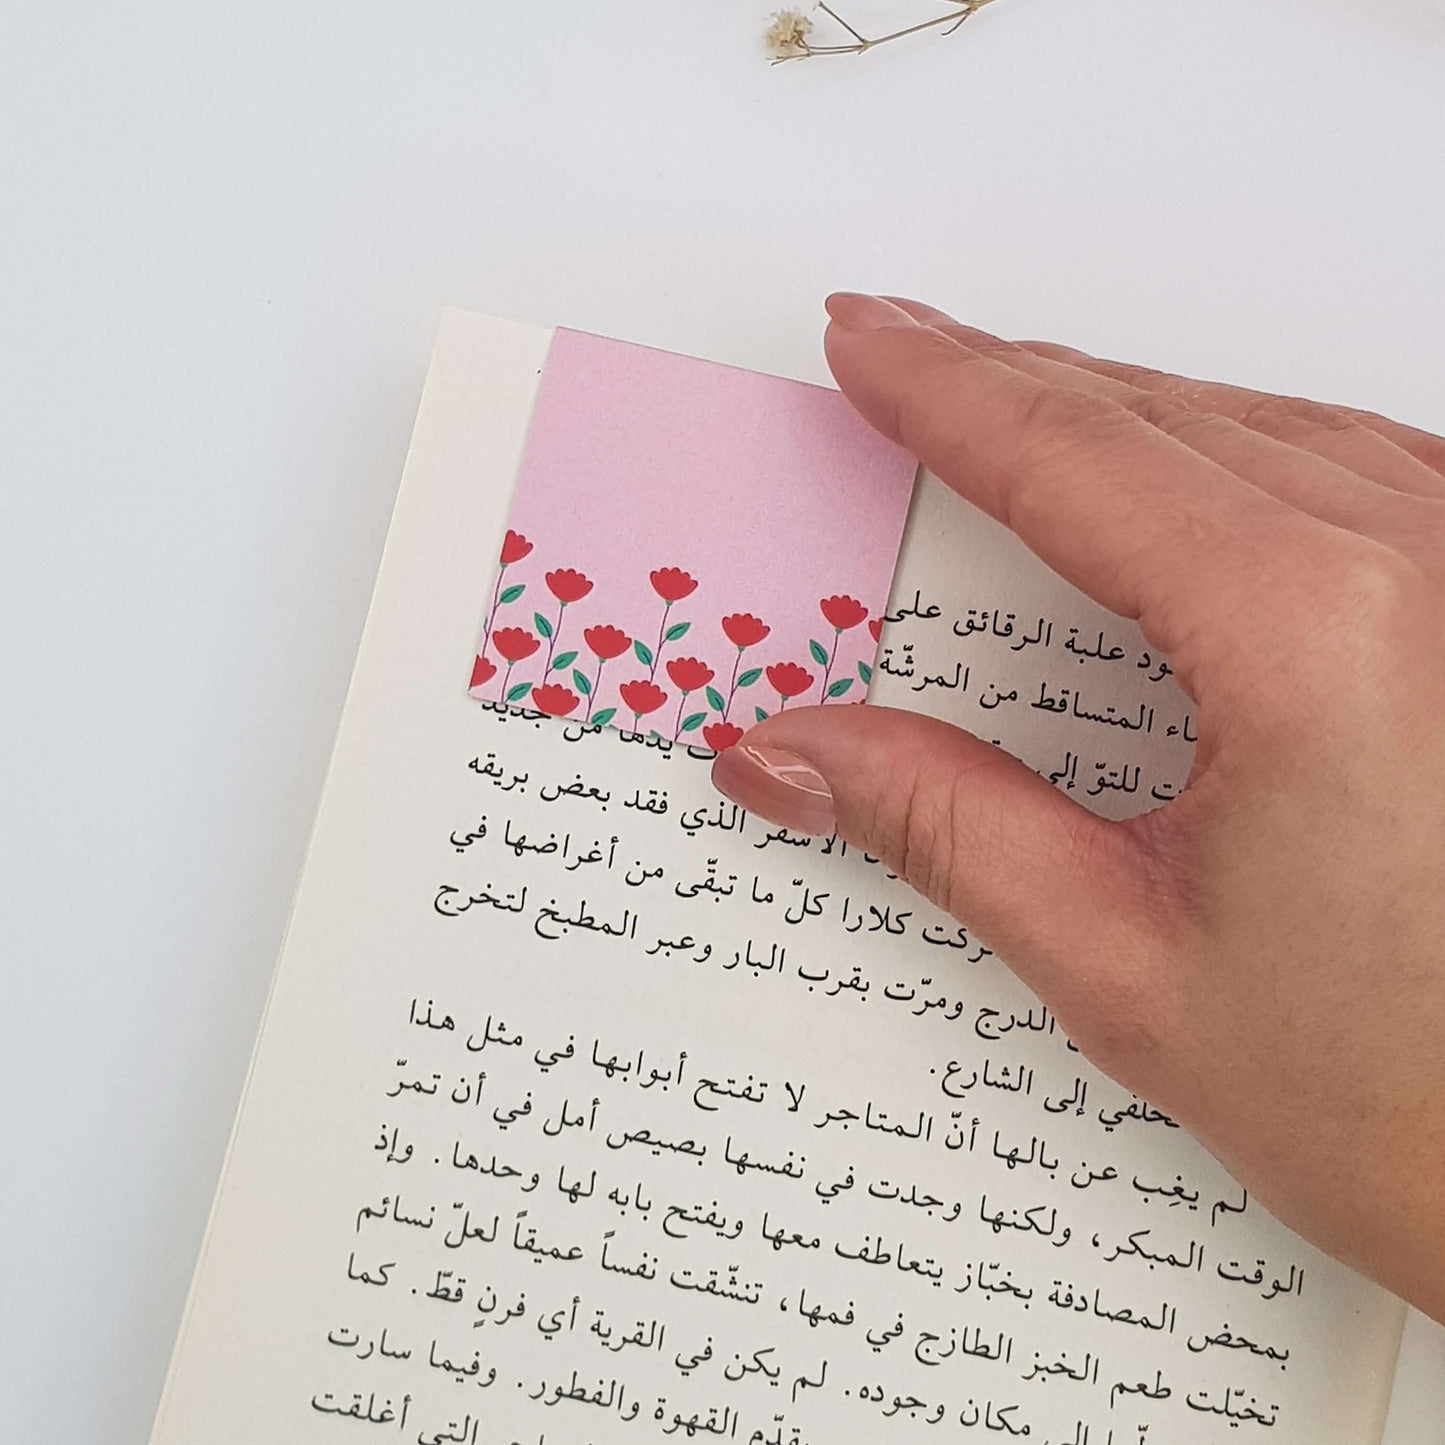 علبة الرقائق على
المتساقط من المرشّة
للتوّ إلى
يدها من جديد
الذي فقد بعض بريقه
كلارا كلّ ما تبقّى من أغراضها في
الدرج ومرّت بقرب البار وعبر المطبخ لتخرج
إلى الشارع.
لم يغِب عن بالها أنّ المتاجر لا تفتح أبوابها في مثل هذا
الوقت المبكر، ولكنها وجدت في نفسها بصيص أمل في أن تمرّ
بمحض المصادفة بخبّاز يتعاطف معها ويفتح بابه لها وحدها. وإذ
تخيّلت طعم الخبز الطازج في فمها، تنشّقت نفساً عميقاً لعلّ نسائم
إلى مكان وجوده. لم يكن في القرية أي فرنٍ قطّ. كما
يقدّم القهوة والفطور. وفيما سارت
التي أغلقت